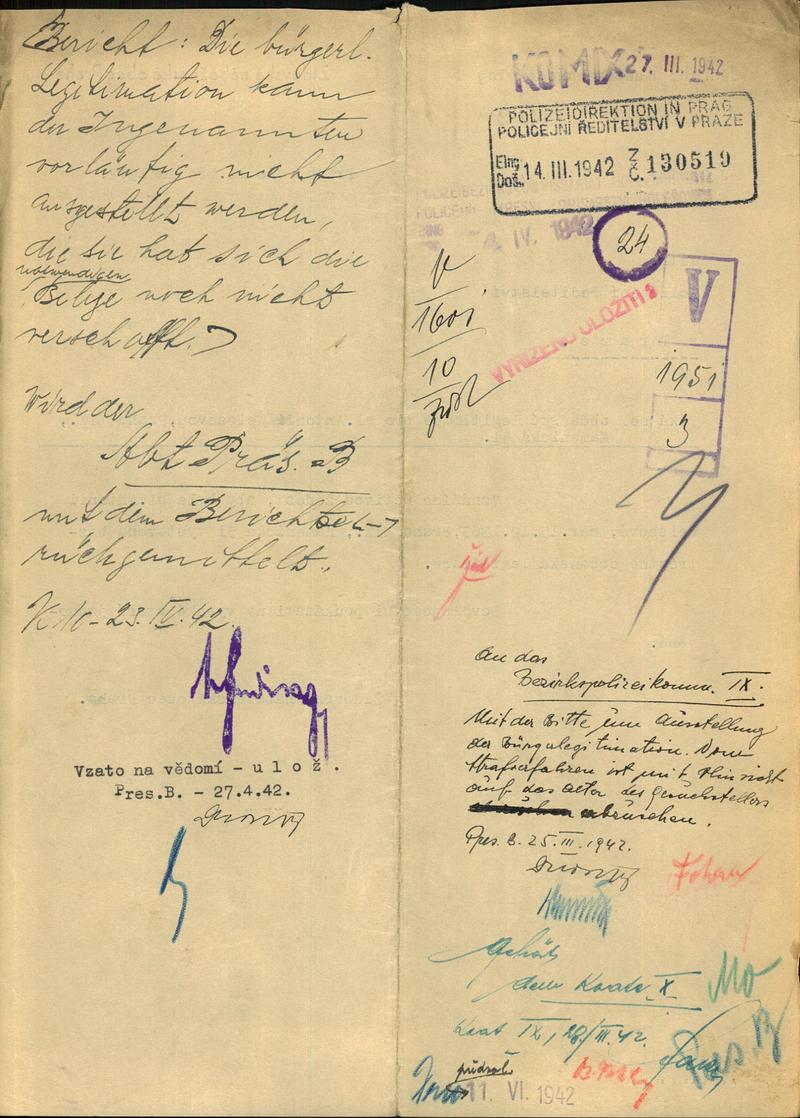 Bericht: Die bürgerl.
Legitimation kann
der Ingenannten
vorläufig nicht
ausgestellt werden,
die sie hat sich die
notwendigen
Belege noch nicht
verschafft.
Wird der
Abt. Präs. B
mit dem Berichte
rückgemittelt.
K 10 - 23. IV. 42.
Vzato na vědomí - u l o ž .
Pres.B. - 27.4.42.
KOMIX 27. III. 1942
POLIZEIDIREKTION IN PRAG
POLICEJNÍ ŘEDITELSTVÍ V PRAZE
Eing. Doš. 14. III. 1942 Z. Č. 130519
4. IV. 1942
24
V
1601
10
VYŘÍZENO ULOŽITI
V
1951
3
žid
An das
Bezirkspolizeikomm. IX.
Mit der Bitte, um Ausstellung
der Bürgerlegitimation. Vom
Strafverfahren ist mit Hinsicht
auf das Alter des Gesuchstellers
abzusehen.
Pres. B. 25. III. 1942.
Gehört
dem Koate X
Koat IX, 28/III. 42.
Pres. B
11. VI. 1942